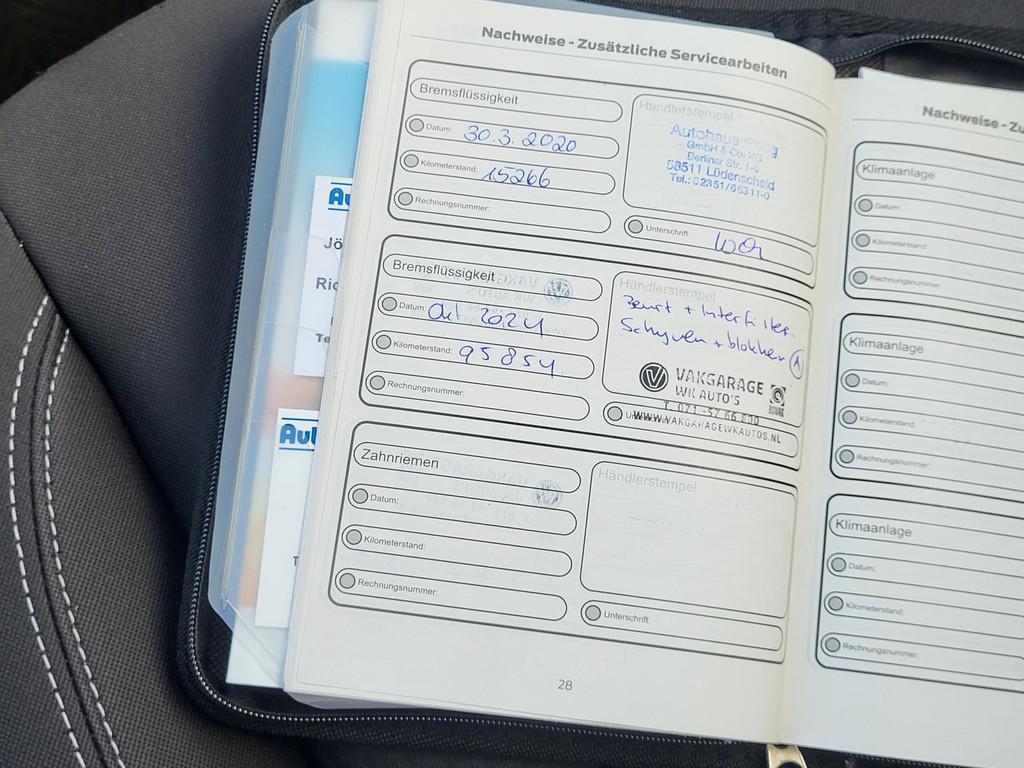 Nachweise - Zusätzliche Servicearbeiten
Bremsflüssigkeit
Datum: 30.3.2020
Kilometerstand: 15266
Rechnungsnummer:
Händlerstempel
Autohaus
GmbH & Co. KG
Berliner Str. 1-3
58511 Lüdenscheid
Tel.: 02351/66311-0
Unterschrift:
Bremsflüssigkeit
Datum: Okt 2024
Kilometerstand: 95854
Rechnungsnummer:
Händlerstempel
Beurt + Interfilter
Schijven + blokken (A)
VAKGARAGE
WK AUTO'S
T. 071 - 57 66 800
WWW.VAKGARAGEWKAUTOS.NL
Zahnriemen
Datum:
Kilometerstand:
Rechnungsnummer:
Händlerstempel
Unterschrift:
28
Nachweise - Zu
Klimaanlage
Datum:
Kilometerstand:
Rechnungsnummer:
Klimaanlage
Datum:
Kilometerstand:
Rechnungsnummer:
Klimaanlage
Datum:
Kilometerstand:
Rechnungsnummer:
Au
Jö
Ric
Te
Aul
T